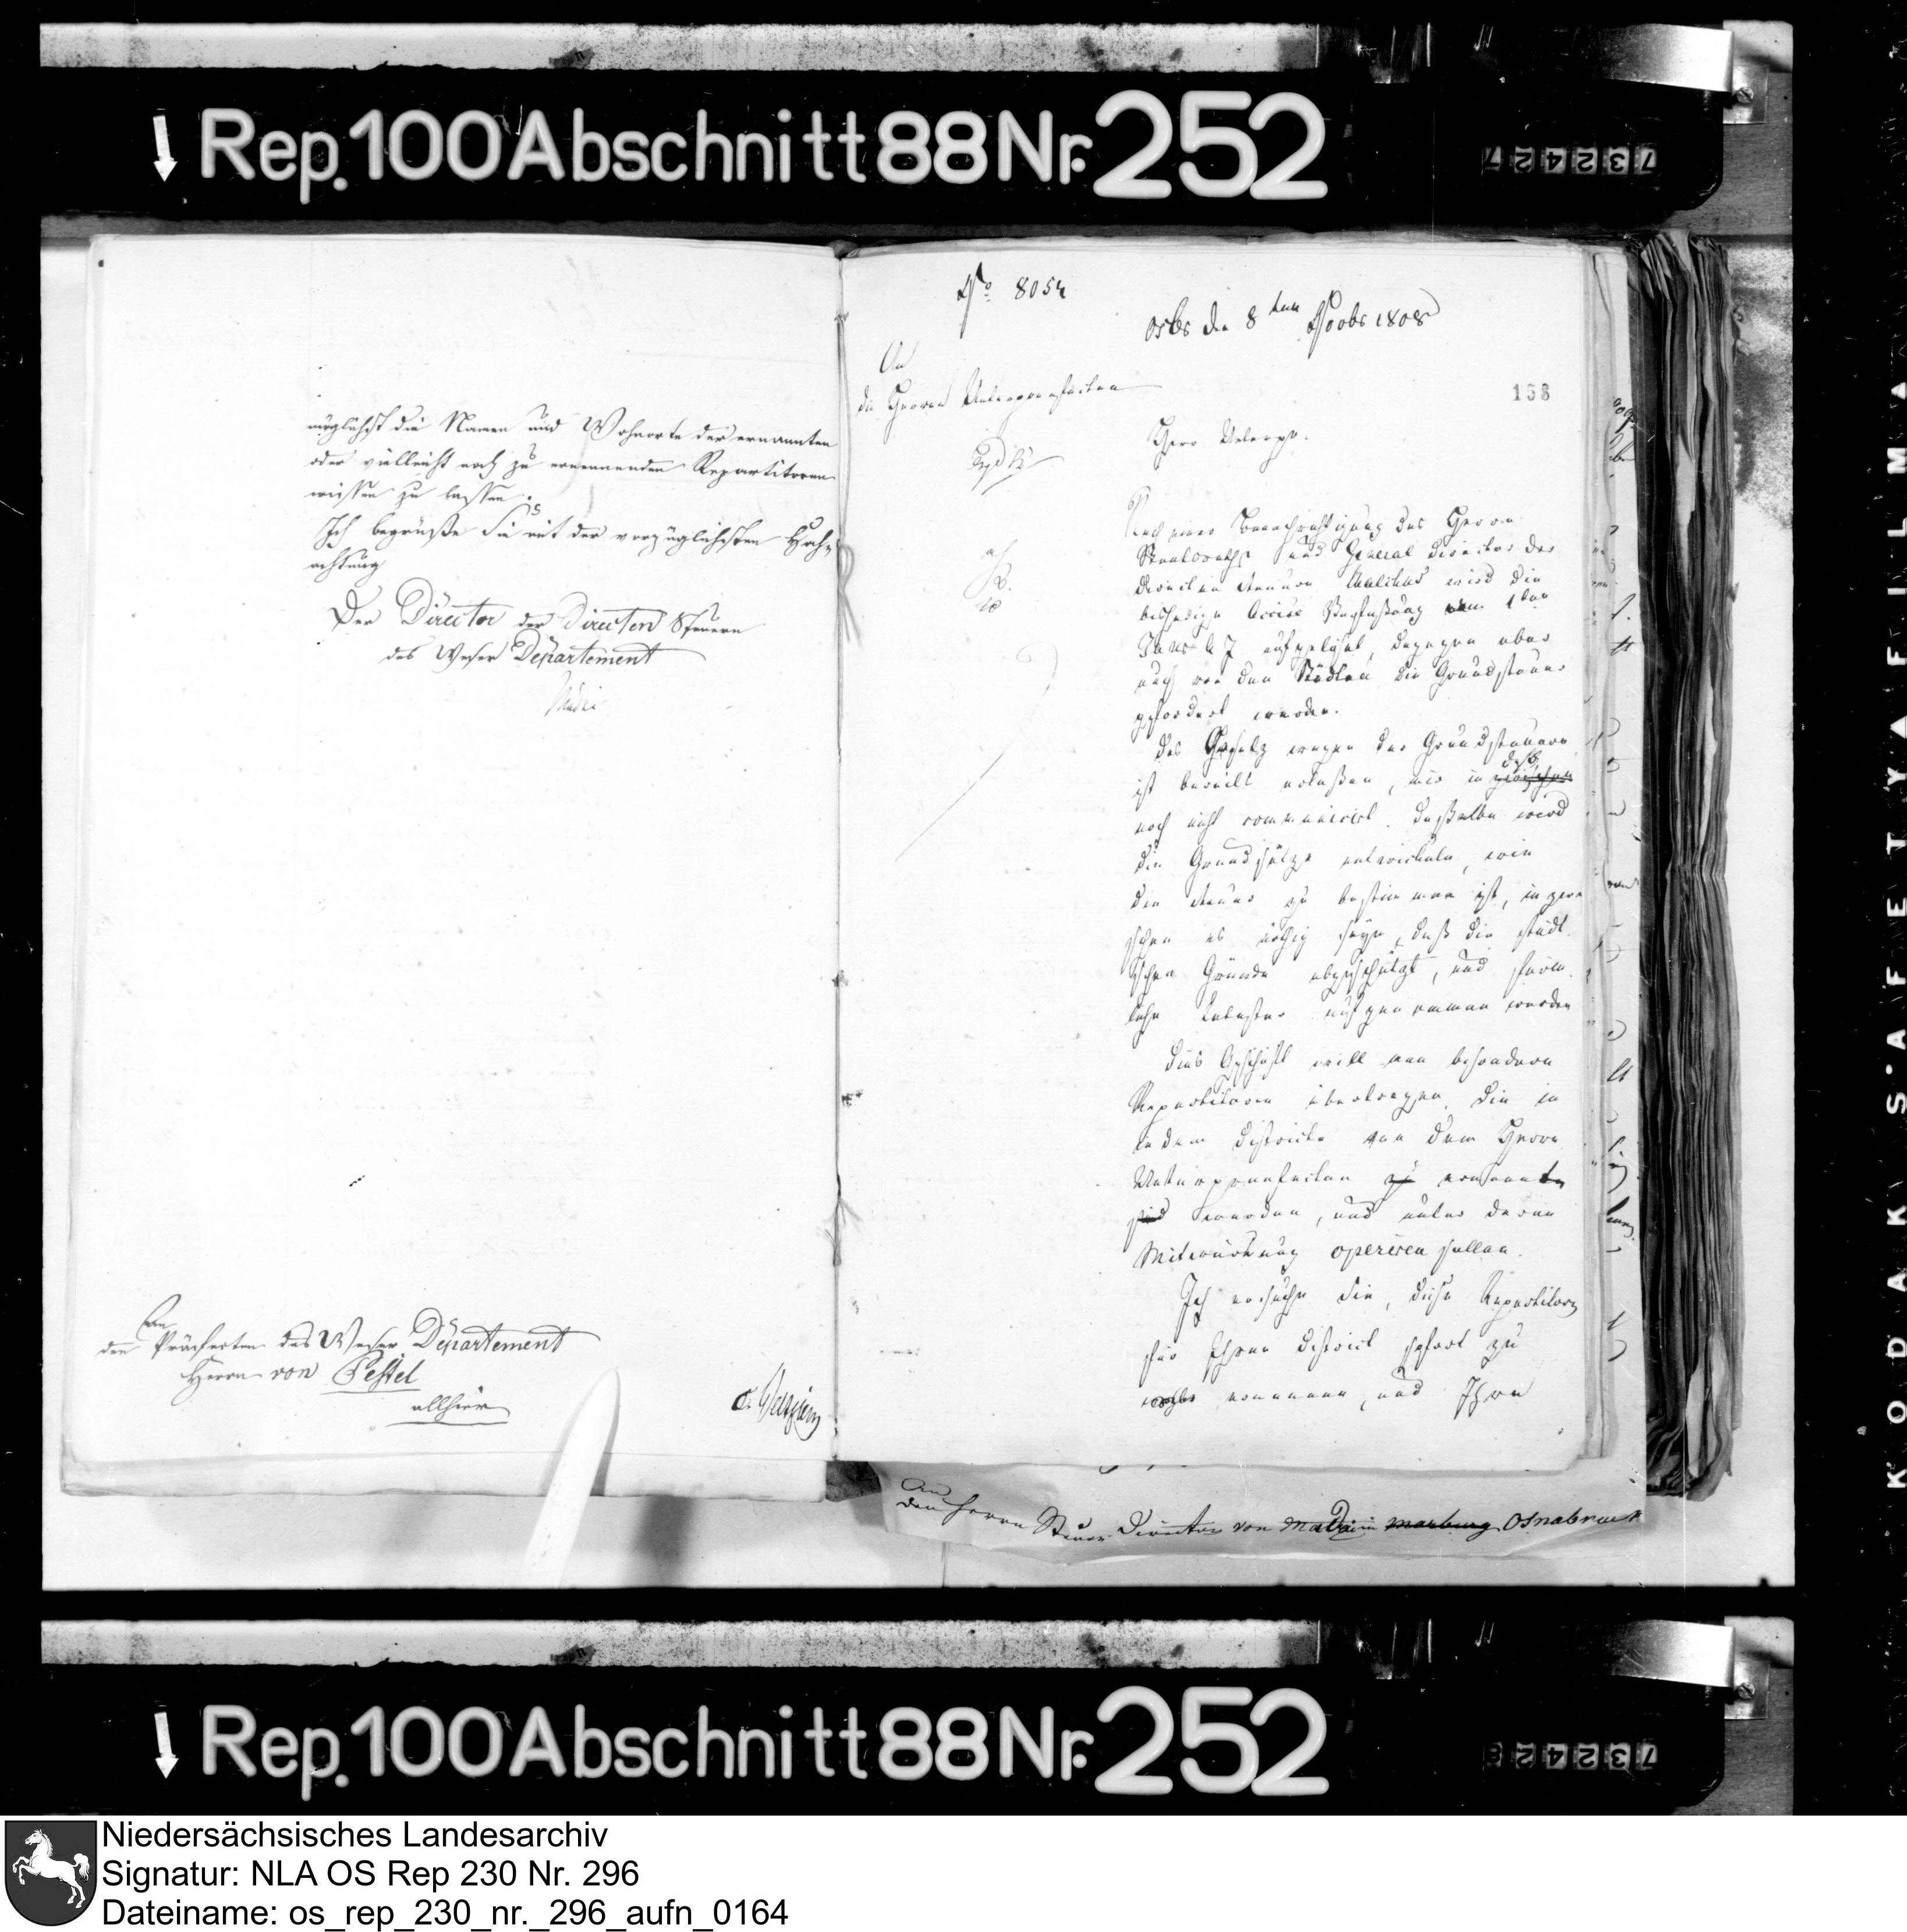 Rep. 100 Abschnitt 88 Nr. 252
732427
möglichst die Namen und Wohnorte der ernannten
oder vielleicht noch zu ernennenden Repartitoren
wissen zu lassen.
Ich begrüße Sie mit der vorzüglichsten Hoch-
achtung
Der Director der Directen Steuern
des Weser Departement
An
den Präfecten des Weser Departement
Herrn von Pestel
allhier
No 8054
Osbr den 8ten Novbr 1808
158
An
die Herren Unterpraefecten
Herr Unterpr.
Nach einer Benachrichtigung des Herrn
Staatsraths und General Director der
directen Steuern Malchus wird die
bisherige Accise Verfaßung vom 1ten
Janr k J aufgelöset, dagegen aber
auch von den Städten die Grundsteuer
gefordert werden.
Das Gesetz wegen der Grundsteuern
ist bereits erlaßen, mir indeß
noch nicht communicirt. Dasselbe wird
die Grundsätze entwickeln, wie
die Steuer zu bestimmen ist, inzwi
schen es nöthig seyn, daß die städt
ischen Gründe abgeschätzt, und förm
liche Kataster aufgenommen werden
Dies Geschäft will man besondern
Repartitoren übertragen, die in
jedem Districte von dem Herrn
Unterpraefecten zu ernannt
sind werden, und unter deren
Mitwürkung operiren sollen.
Ich ersuche Sie, diese Repartitoren
für Ihren District sofort zu
ernennen, und Ihre
An
den Herrn Steuer Director von Marburg Osnabrueck
Rep. 100 Abschnitt 88 Nr. 252
732428
KODAK S·AFETY▲FILM▲
Niedersächsisches Landesarchiv
Signatur: NLA OS Rep 230 Nr. 296
Dateiname: os_rep_230_nr._296_aufn_0164